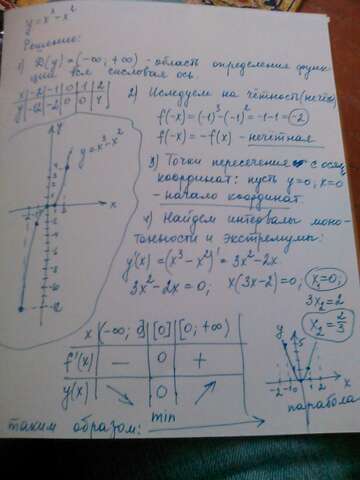 y=x³-x²
Решение:
1) D(y)=(-∞;+∞) - область определения функ-
ции вся числовая ось.
x|-2|-1|0|1|2
y|-12|-2|0|0|4
y=x³-x²
Y
x
2) Иследуем на чётность(нечётн)
f(-x)=(-1)³-(-1)²=-1-1=-2
f(-x)=-f(x) - нечётная
3) Точки пересечения с осями
координат: пусть y=0; x=0
- начало координат
4) Найдем интервалы моно-
тонности и экстремумы:
y'(x)=(x³-x²)'=3x²-2x.
3x²-2x=0; x(3x-2)=0; x₁=0;
3x₂=2
x₂=2/3
x | (-∞; 0] | [0] | [0; +∞)
f'(x) | — | 0 | +
y(x) | ↘ | 0 | ↗
min
y
5
-2 -1 0 1 2
x
парабола
таким образом: